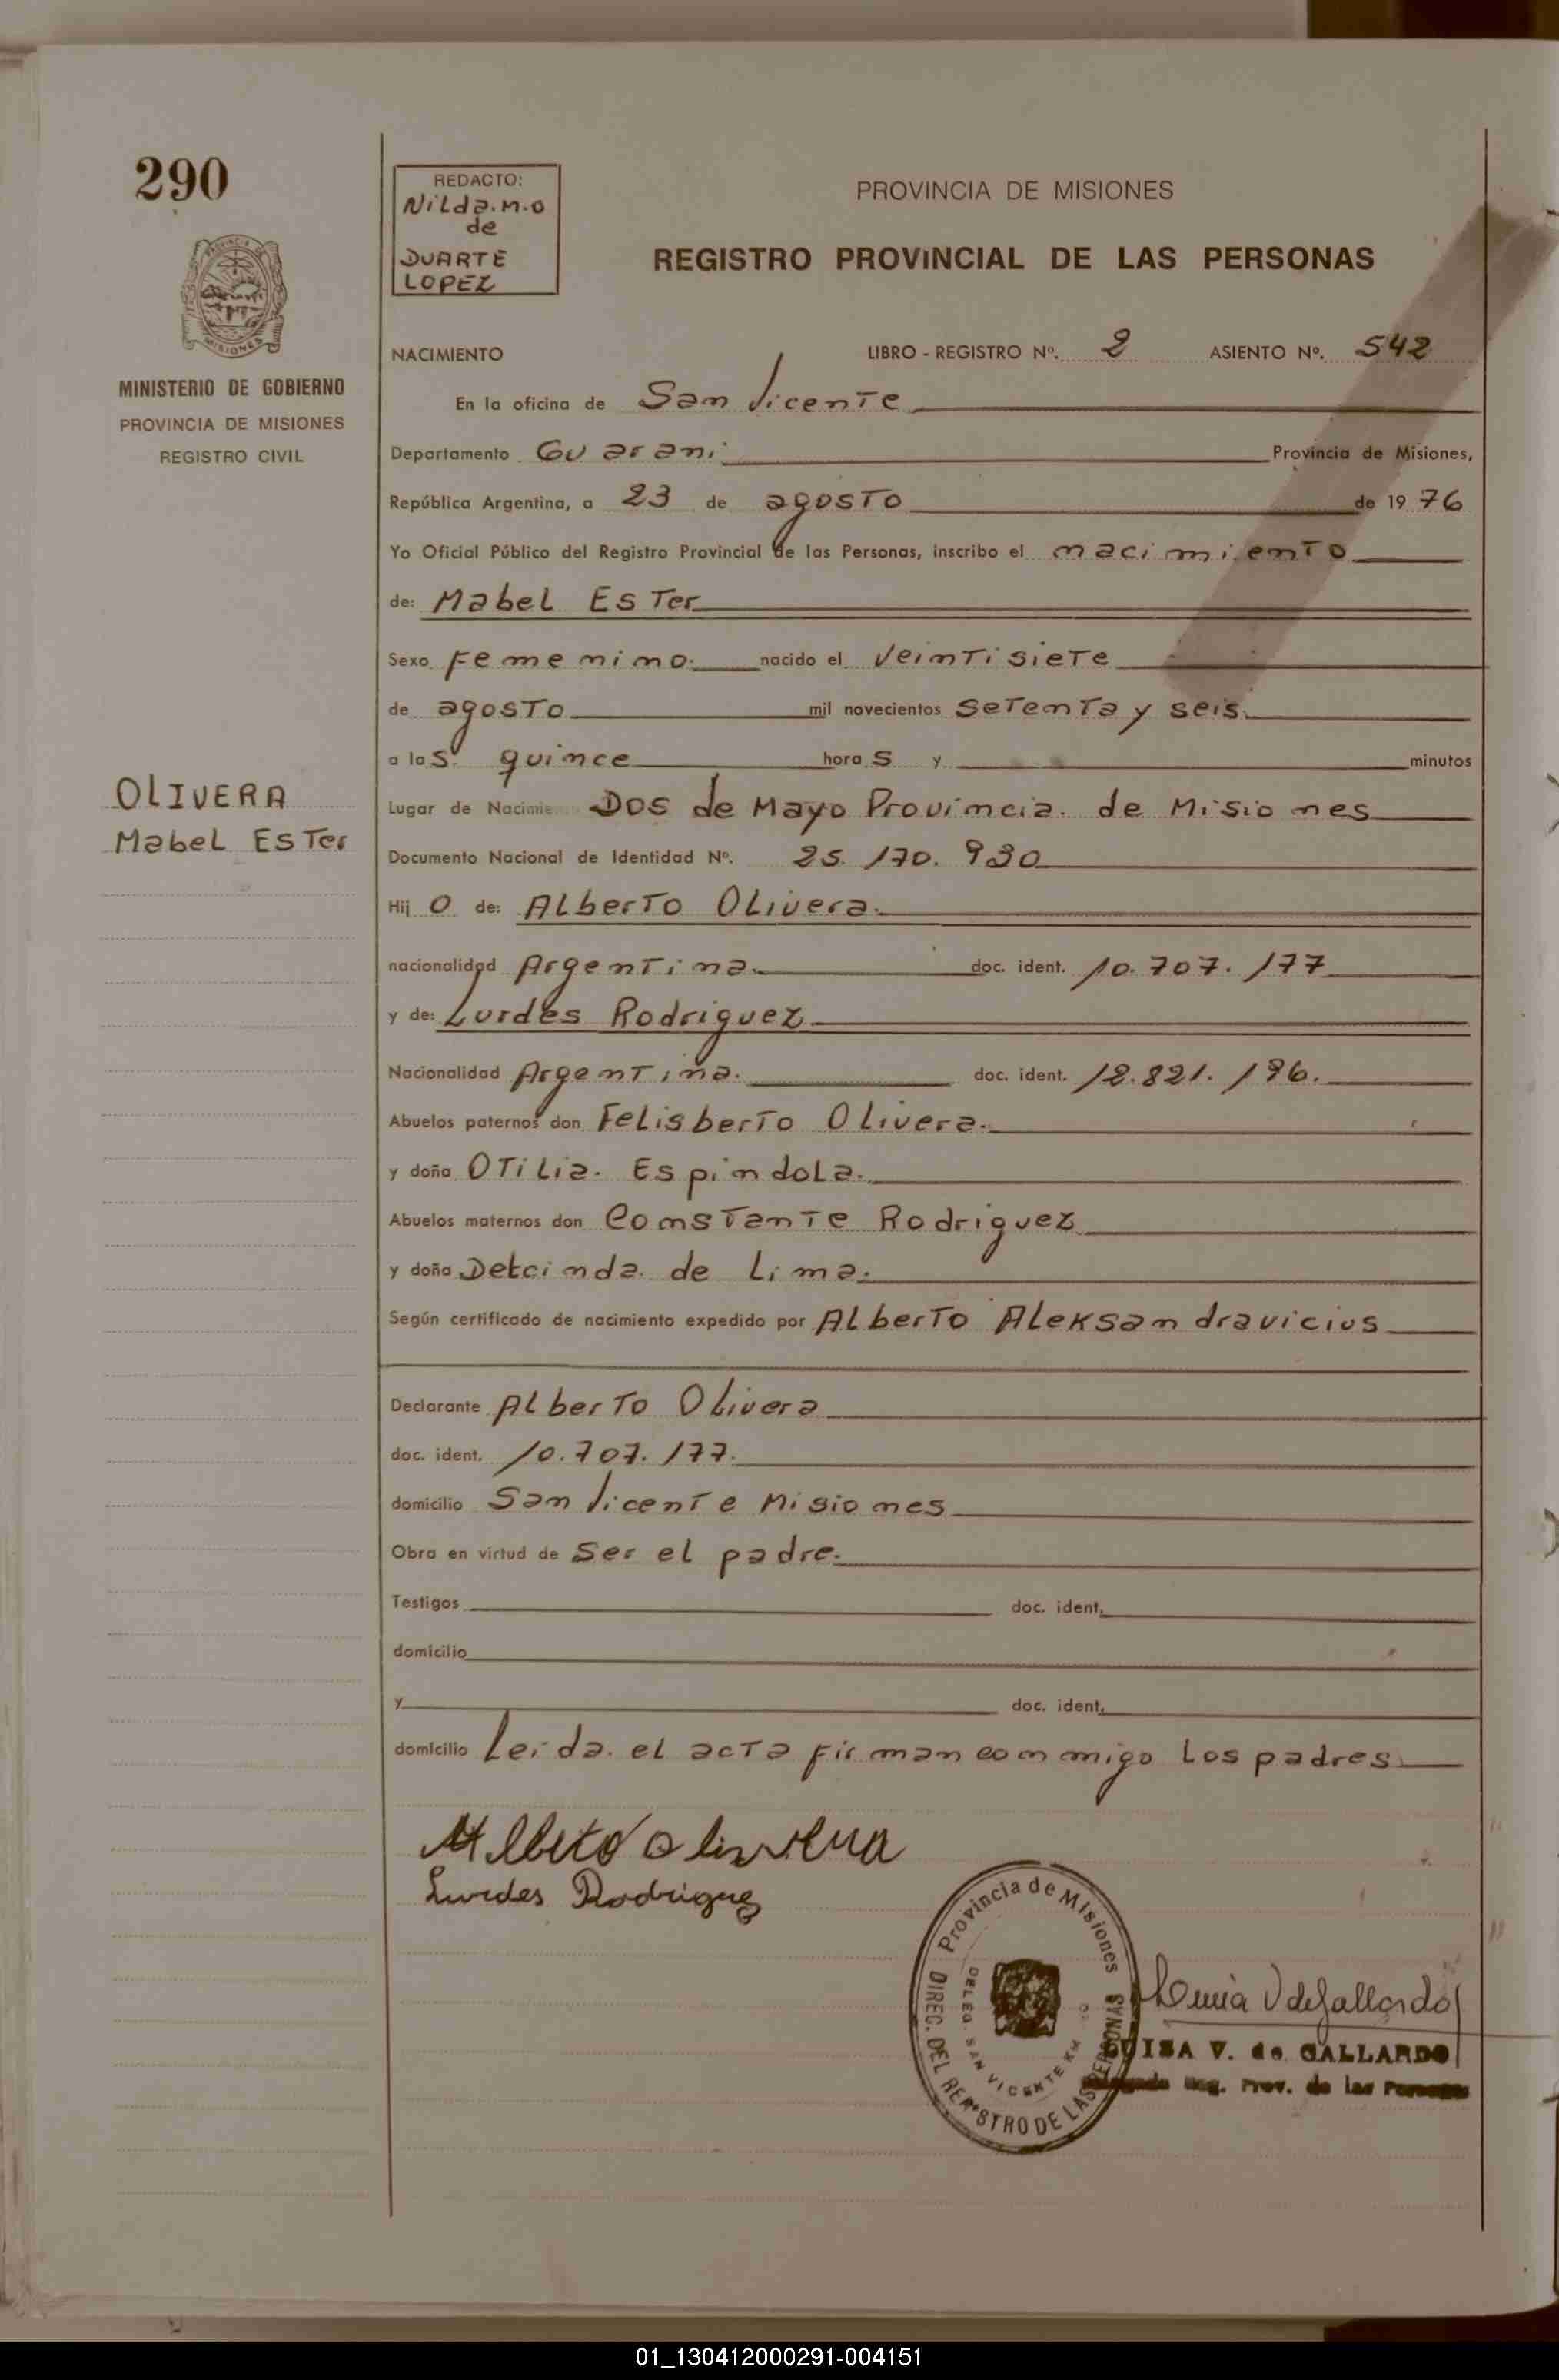 290
REDACTO:
Nilda.M.O
de
DUARTE
LOPEZ
PROVINCIA DE MISIONES
REGISTRO PROVINCIAL DE LAS PERSONAS
MISIONES
MINISTERIO DE GOBIERNO
PROVINCIA DE MISIONES
REGISTRO CIVIL
NACIMIENTO LIBRO - REGISTRO Nº. 2 ASIENTO Nº. 542
En la oficina de San Vicente
Departamento Guarani Provincia de Misiones,
República Argentina, a 23 de agosto de 1976
Yo Oficial Público del Registro Provincial de las Personas, inscribo el nacimiento
de: Mabel Ester
Sexo Femenino. nacido el veintisiete
de agosto mil novecientos setenta y seis.
a las quince horas y minutos
OLIVERA
Mabel Ester
Lugar de Nacimie Dos de Mayo Provincia. de Misiones
Documento Nacional de Identidad Nº. 25.170.930
Hij o de: Alberto Olivera.
nacionalidad Argentina. doc. ident. 10.707.177
y de: Lurdes Rodriguez
Nacionalidad Argentina. doc. ident. 12.821.196.
Abuelos paternos don Felisberto Olivera.
y doña Otilia. Espindola.
Abuelos maternos don Constante Rodriguez
y doña de Lima.
Según certificado de nacimiento expedido por Alberto Aleksandravicius
Declarante Alberto Olivera
doc. ident. 10.707.177.
domicilio San Vicente Misiones
Obra en virtud de Ser el padre.
Testigos doc. ident.
domicilio
y doc. ident.
domicilio Leida. el acta firman conmigo los padres
Alberto Olivera
Lurdes Rodriguez
Provincia de Misiones
DIREC. DEL REGISTRO DE LAS PERSONAS
DELEG. SAN VICENTE KM
Luisa V de Gallardo
LUISA V. de GALLARDO
Delegada Reg. Prov. de las Personas
01_130412000291-004151